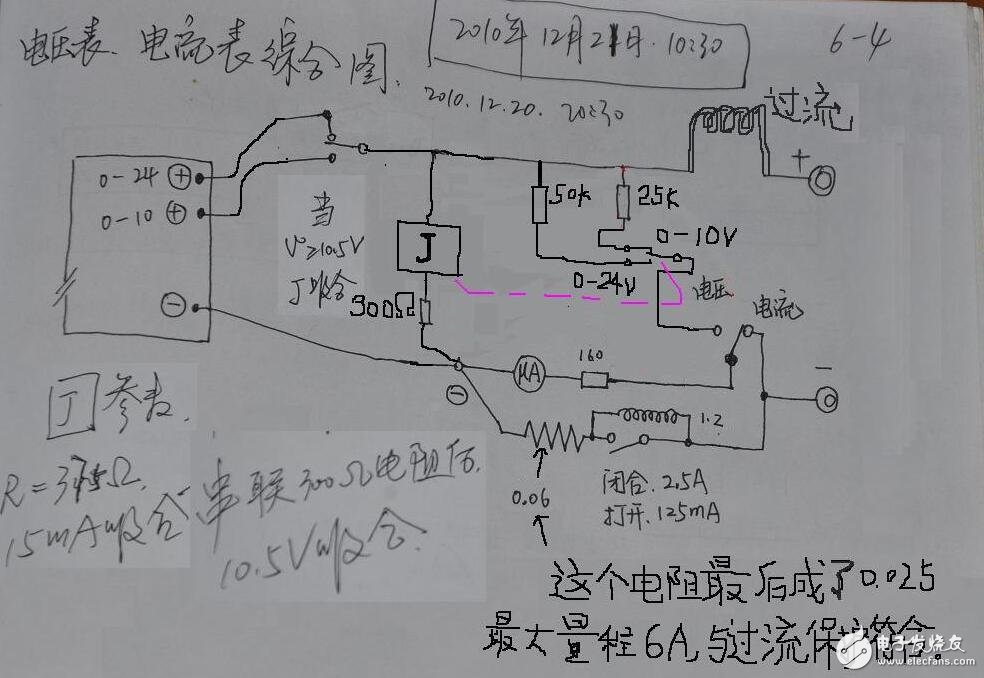 电压表、电流表综合图.
2010年12月21日.10:30
6-4
2010.12.20. 20:30
过流
+
0-24 ⊕
0-10 ⊕
50k
25K
当
V°≥10.5V
J吸合
J
0-10V
0-24V
电压
电流
300Ω
⊖
μA
160
⊖
−
1.2
J 参数.
0.06
闭合.2.5A
打开.125mA
15mA吸合
串联300Ω电阻后.
10.5V吸合.
这个电阻最后成了0.025
最大量程6A,与过流保护符合。
电子发烧友
www.elecfans.com